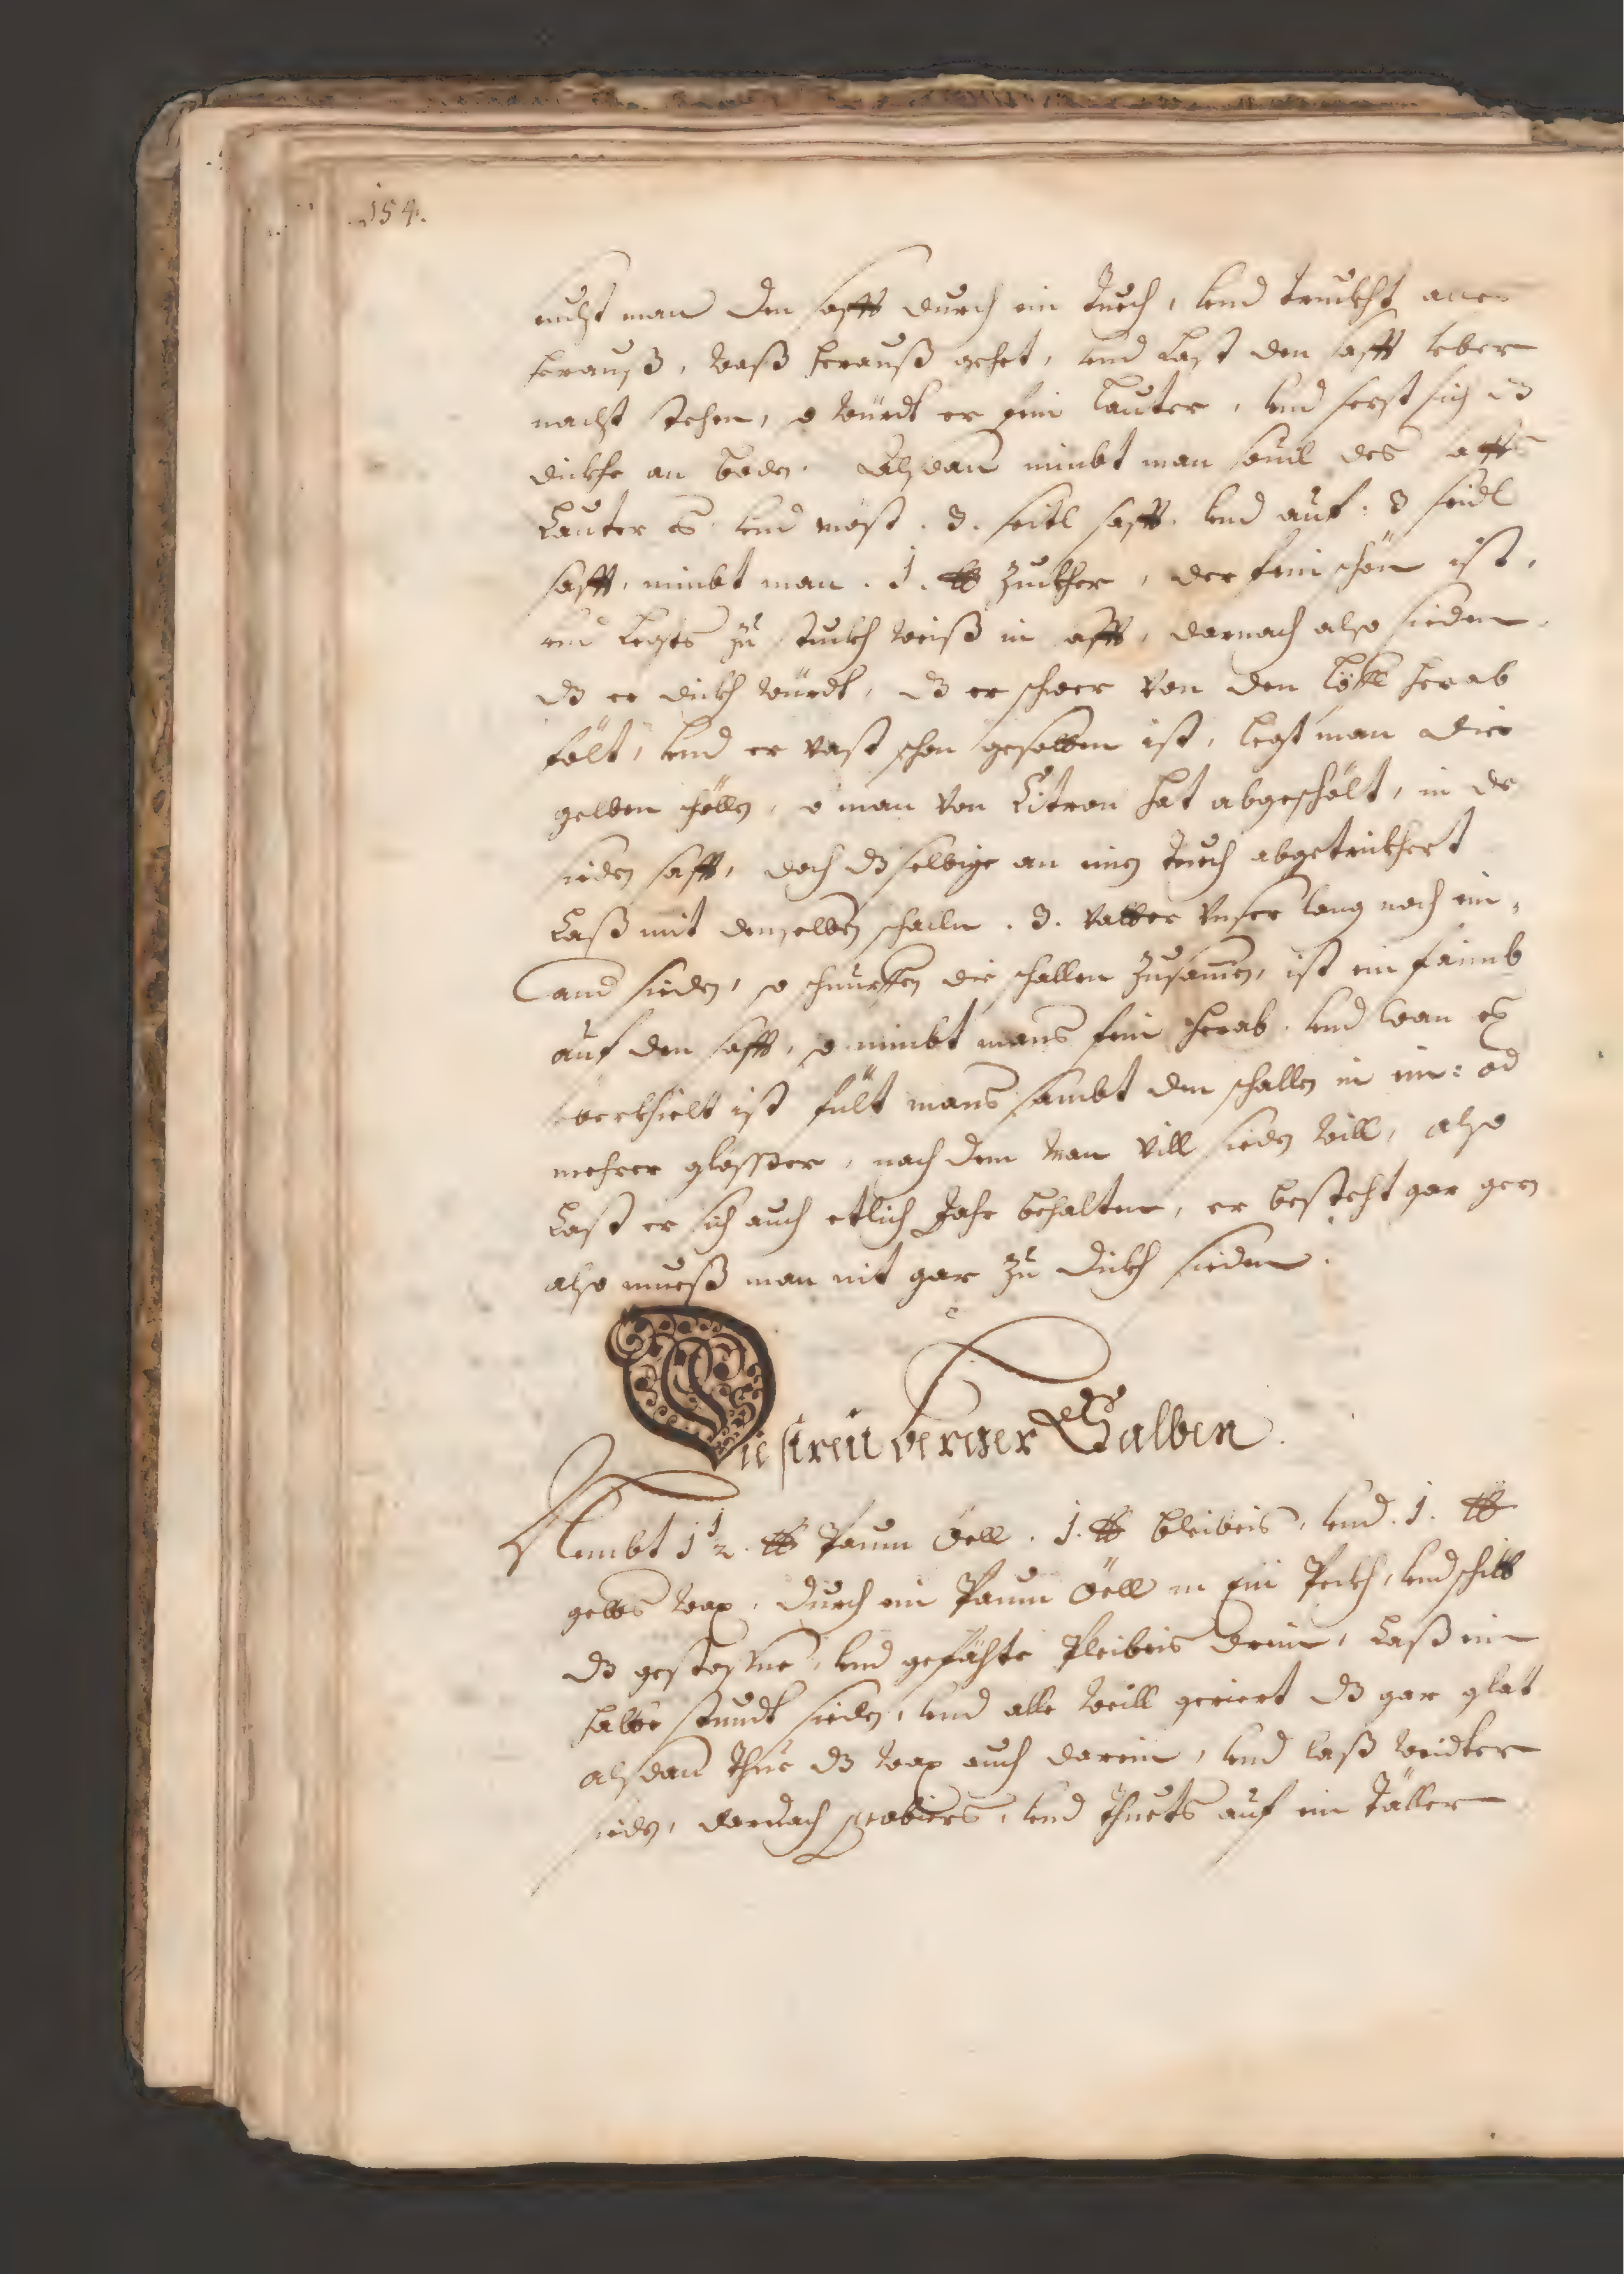 154.
man den safft durch ein tuech, vnd truckht alles
herauß, waß herauß gehet, vnd Last den safft vber
nacht stehen, so würdt er fein lauter, vnd sezt sich dz
dickhe an boden. Alßdan nimbt man souil des saffts
Lauter es, vnd mäst. 3. seitl safft, vnd auf: 3 seidl
safft, nimbt man. 1. ℔ Zuckher, der fein schön ist,
vnd Legts zu stuckh weiß in safft, darnach also sieden,
dz er dickh würdt, dz er schwer von den Löffl herab
fält, vnd er vast schon gesotten ist, legt man die
gelben schöllen, so man von Citron hat abgeschölt, in de
sieden safft, doch dz selbige an einen tuech abgetrickhert
Laß mit denselben schallen. 3. vatter vnser lang noch ein,
and sieden, so schnurffen die schallen zusamen, ist ein faimb
auf den safft, so nimbt mans fein herab, vnd wan er
vberkhielt ist fült mans sambt den schallen in ein: od
mehrer glässer, nach dem man vill sieden will, also
Last er sich auch etlich Jahr behalten, er besteht gar gern
also mueß man nit gar zu dickh sieden.
Die streitberger Salben
Nembt 1 1/2. ℔ Paum Öell. 1. ℔ bleibeis, vnd. 1. ℔
gelbs wax, durch ein Paum Öell in ein Peckh, vnd schitt
dz gestossne, vnd gefähte Pleibeis drein, Laß ein
halbe stundt sieden, vnd alle weill geriert dz gar glat
alßdan thue dz wax auch darein, vnd laß weidter
sieden, darnach probiers, vnd thuets auf ein täller